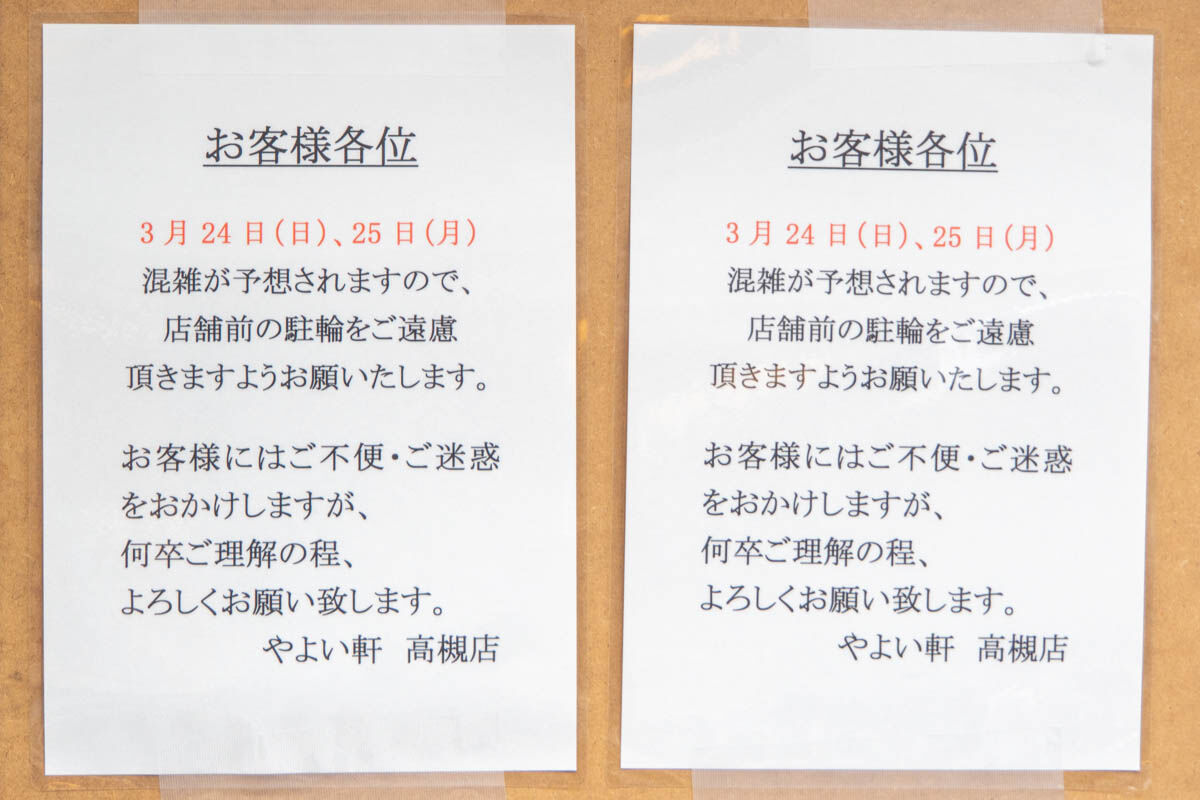 お客様各位
3月24日(日)、25日(月)
混雑が予想されますので、
店舗前の駐輪をご遠慮
頂きますようお願いたします。
お客様にはご不便・ご迷惑
をおかけしますが、
何卒ご理解の程、
よろしくお願い致します。
やよい軒 高槻店
お客様各位
3月24日(日)、25日(月)
混雑が予想されますので、
店舗前の駐輪をご遠慮
頂きますようお願いたします。
お客様にはご不便・ご迷惑
をおかけしますが、
何卒ご理解の程、
よろしくお願い致します。
やよい軒 高槻店